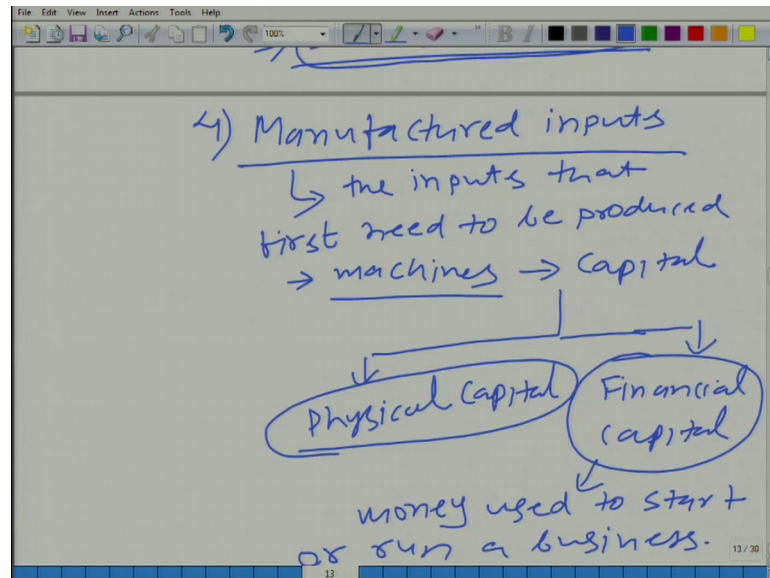 File Edit View Insert Actions Tools Help
100%
B I
4) Manufactured inputs
↳ the inputs that
first need to be produced
→ machines → Capital
Physical Capital
Financial
Capital
money used to start
or run a business.
13 / 30
13